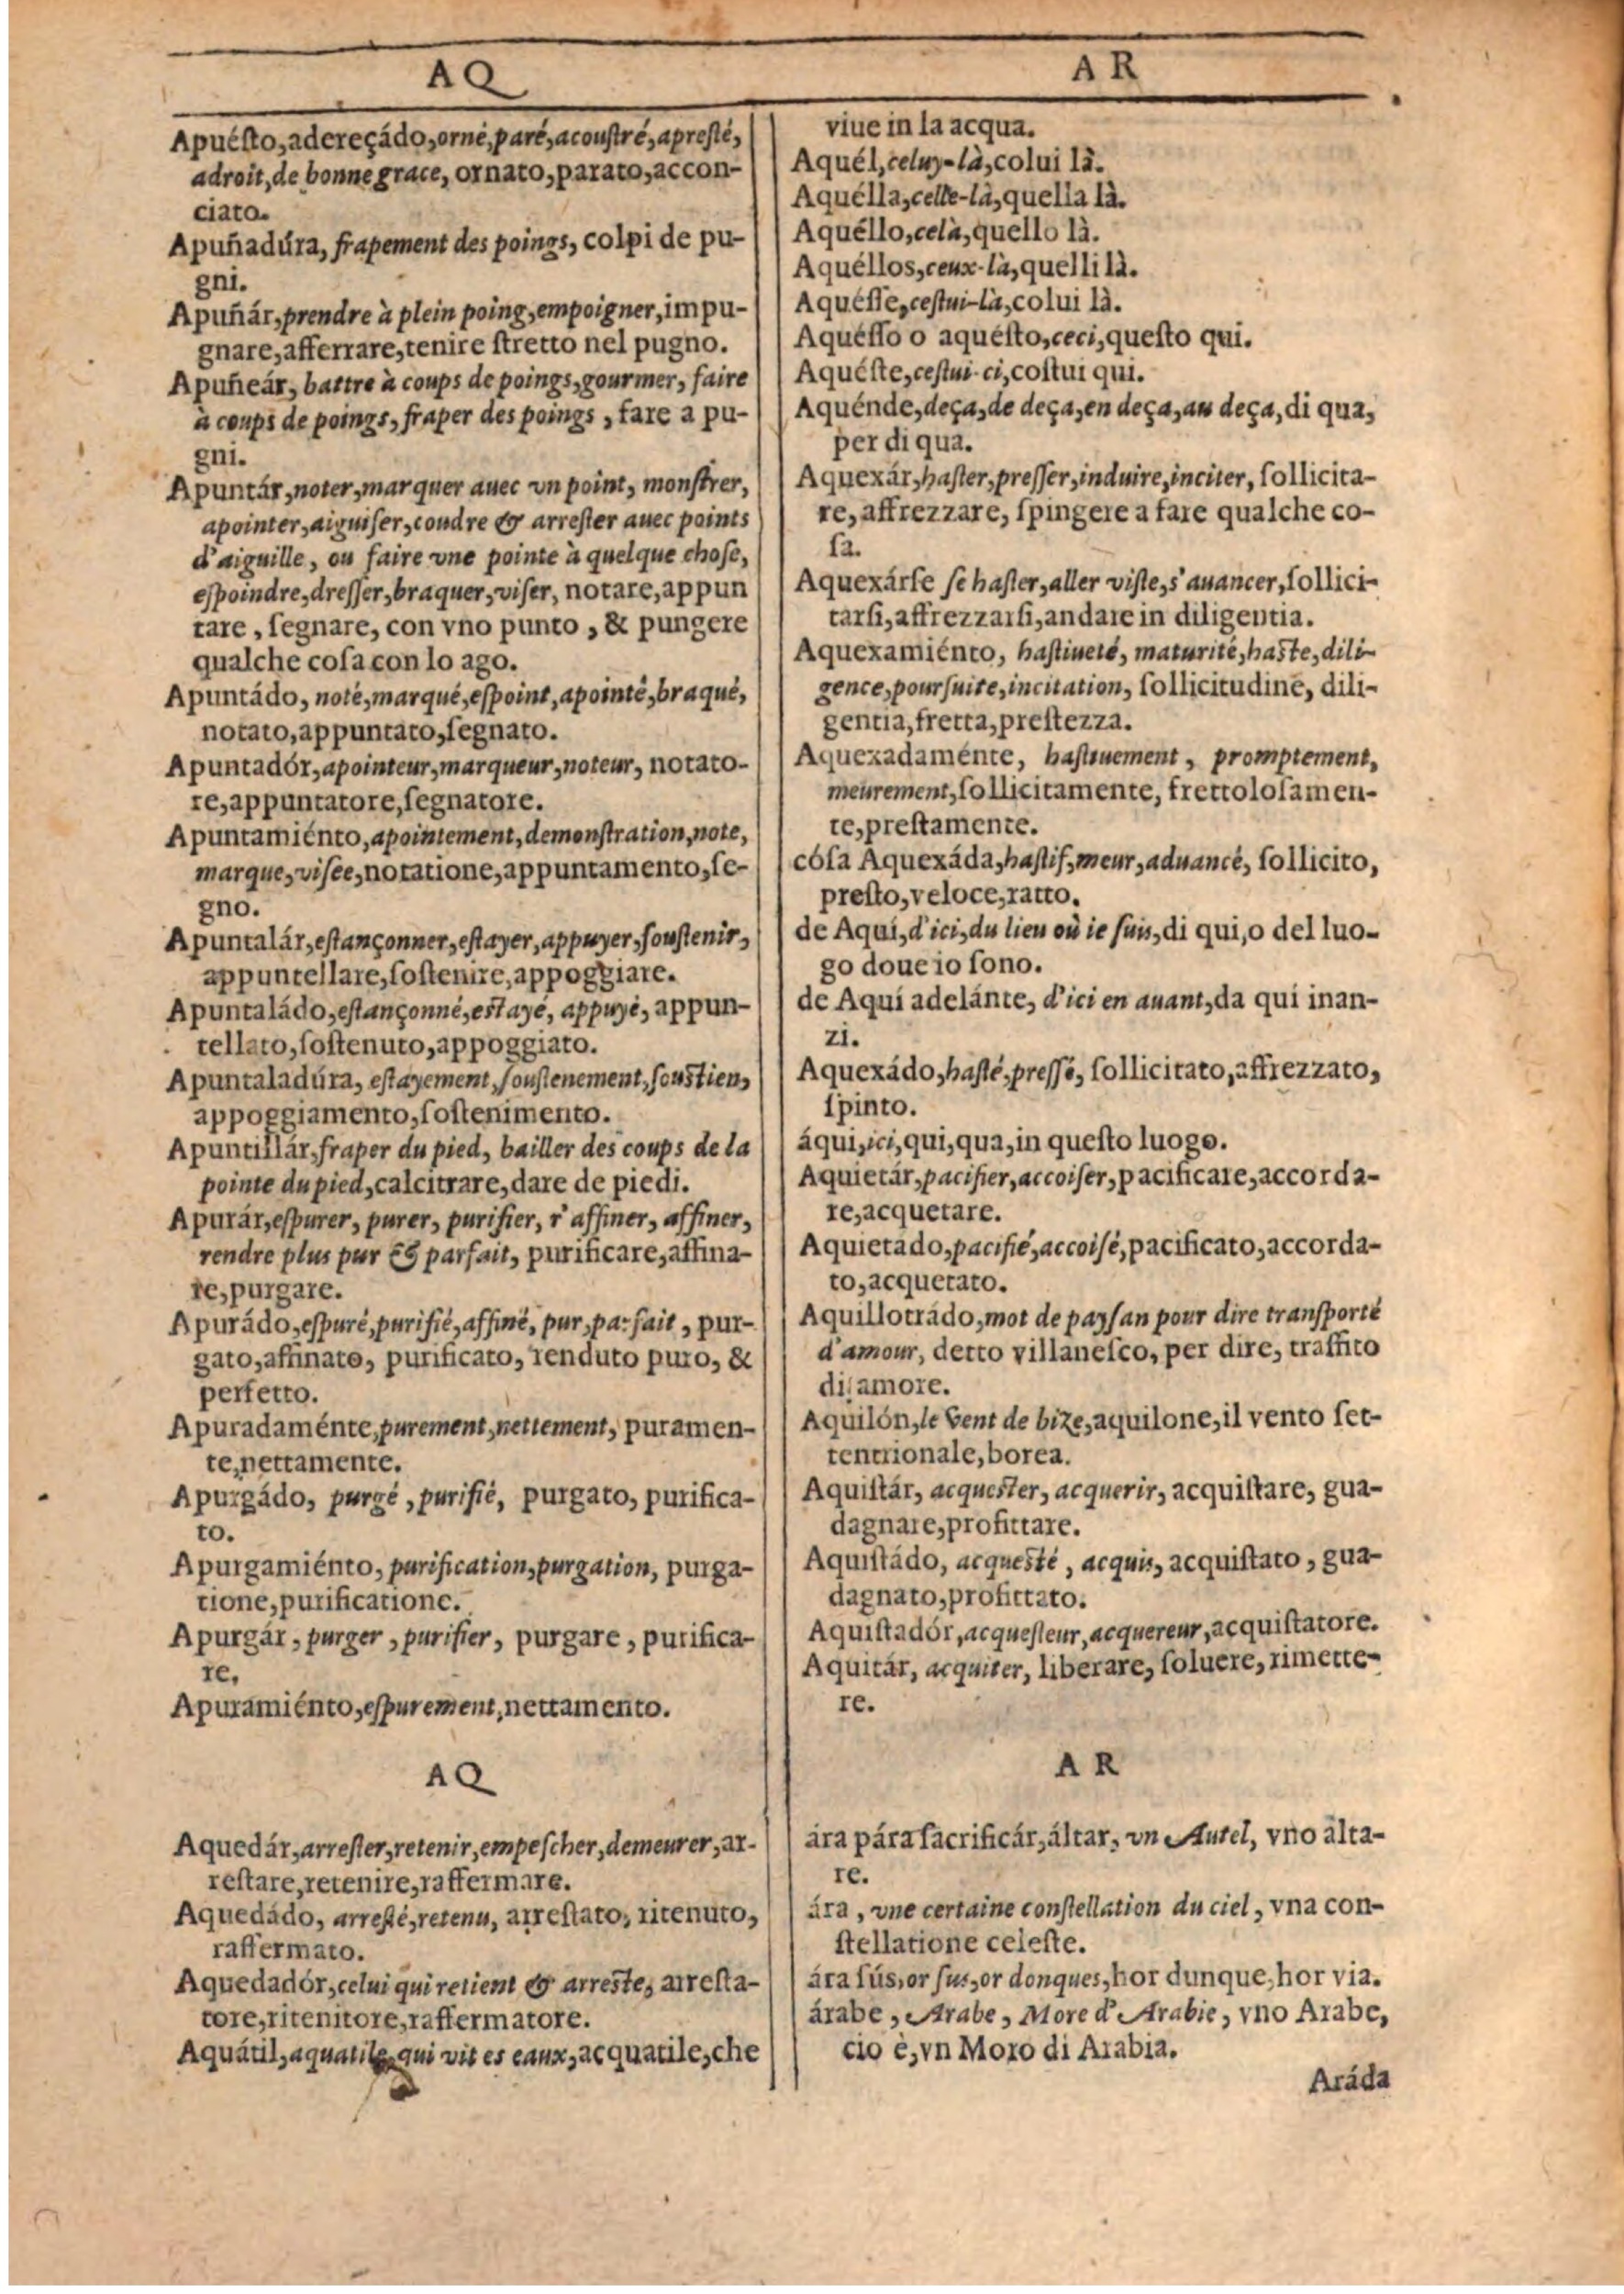 AQ
Apuéſto, adereçádo, orné, paré, acouſtré, apreſté,
adroit, de bonne grace, ornato, parato, accon-
ciato.
Apuñadúra, frapement des poings, colpi de pu-
gni.
Apuñár, prendre à plein poing, empoigner, impu-
gnare, afferrare, tenire ſtretto nel pugno.
Apuñeár, battre à coups de poings, gourmer, faire
à coups de poings, fraper des poings, fare a pu-
gni.
Apuntár, noter, marquer auec vn point, monſtrer,
apointer, aiguiſer, coudre & arreſter auec points
d'aiguille, ou faire vne pointe à quelque choſe,
eſpoindre, dreſſer, braquer, viſer, notare, appun
tare, ſegnare, con vno punto, & pungere
qualche coſa con lo ago.
Apuntádo, noté, marqué, eſpoint, apointé, braqué,
notato, appuntato, ſegnato.
Apuntadór, apointeur, marqueur, noteur, notato-
re, appuntatore, ſegnatore.
Apuntamiénto, apointement, demonſtration, note,
marque, viſee, notatione, appuntamento, ſe-
gno.
Apuntalár, eſtançonner, eſtayer, appuyer, ſouſtenir,
appuntellare, ſoſtenire, appoggiare.
Apuntaládo, eſtançonné, eſtayé, appuyé, appun-
tellato, ſoſtenuto, appoggiato.
Apuntaladúra, eſtayement, ſouſtenement, ſouſtien,
appoggiamento, ſoſtenimento.
Apuntillár, fraper du pied, bailler des coups de la
pointe du pied, calcitrare, dare de piedi.
Apurár, eſpurer, purer, purifier, r'affiner, affiner,
rendre plus pur & parfait, purificare, affina-
re, purgare.
Apurádo, eſpuré, purifié, affiné, pur, parfait, pur-
gato, affinato, purificato, renduto puro, &
perfetto.
Apuradaménte, purement, nettement, puramen-
te, nettamente.
Apurgádo, purgé, purifié, purgato, purifica-
to.
Apurgamiénto, purification, purgation, purga-
tione, purificatione.
Apurgár, purger, purifier, purgare, purifica-
re.
Apuramiénto, eſpurement, nettamento.
AQ
Aquedár, arreſter, retenir, empeſcher, demeurer, ar-
reſtare, retenire, raffermare.
Aquedádo, arreſté, retenu, arreſtato, ritenuto,
raffermato.
Aquedadór, celui qui retient & arreſte, arreſta-
tore, ritenitore, raffermatore.
Aquátil, aquatile, qui vit es eaux, acquatile, che
AR
viue in la acqua.
Aquél, celuy-là, colui là.
Aquélla, celle-là, quella là.
Aquéllo, celà, quello là.
Aquéllos, ceux-là, quelli là.
Aquéſſe, ceſtui-là, colui là.
Aquéſſo o aquéſto, ceci, queſto qui.
Aquéſte, ceſtui-ci, coſtui qui.
Aquénde, deça, de deça, en deça, au deça, di qua,
per di qua.
Aquexár, haſter, preſſer, induire, inciter, ſollicita-
re, affrezzare, ſpingere a fare qualche co-
ſa.
Aquexárſe ſe haſter, aller viſte, s'auancer, ſollici-
tarſi, affrezzarſi, andare in diligentia.
Aquexamiénto, haſtiueté, maturité, haſte, dili-
gence, pourſuite, incitation, ſollicitudine, dili-
gentia, fretta, preſtezza.
Aquexadaménte, haſtiuement, promptement,
meurement, ſollicitamente, frettoloſamen-
te, preſtamente.
cóſa Aquexáda, haſtif, meur, aduancé, ſollicito,
preſto, veloce, ratto.
de Aquí, d'ici, du lieu où ie ſuis, di qui, o del luo-
go doue io ſono.
de Aquí adelánte, d'ici en auant, da qui inan-
zi.
Aquexádo, haſté, preſſé, ſollicitato, affrezzato,
ſpinto.
áqui, ici, qui, qua, in queſto luogo.
Aquietár, pacifier, accoiſer, pacificare, accorda-
re, acquetare.
Aquietádo, pacifié, accoiſé, pacificato, accorda-
to, acquetato.
Aquillotrádo, mot de payſan pour dire tranſporté
d'amour, detto villaneſco, per dire, traffito
di amore.
Aquilón, le vent de bize, aquilone, il vento ſet-
tentrionale, borea.
Aquiſtár, acqueſter, acquerir, acquiſtare, gua-
dagnare, profittare.
Aquiſtádo, acqueſté, acquis, acquiſtato, gua-
dagnato, profittato.
Aquiſtadór, acqueſteur, acquereur, acquiſtatore.
Aquitár, acquiter, liberare, ſoluere, rimette-
re.
AR
ára pára ſacrificár, áltar, vn Autel, vno alta-
re.
ára, vne certaine conſtellation du ciel, vna con-
ſtellatione celeſte.
ára ſús, or ſus, or donques, hor dunque, hor via.
árabe, Arabe, More d'Arabie, vno Arabe,
cio è, vn Moro di Arabia.
Aráda